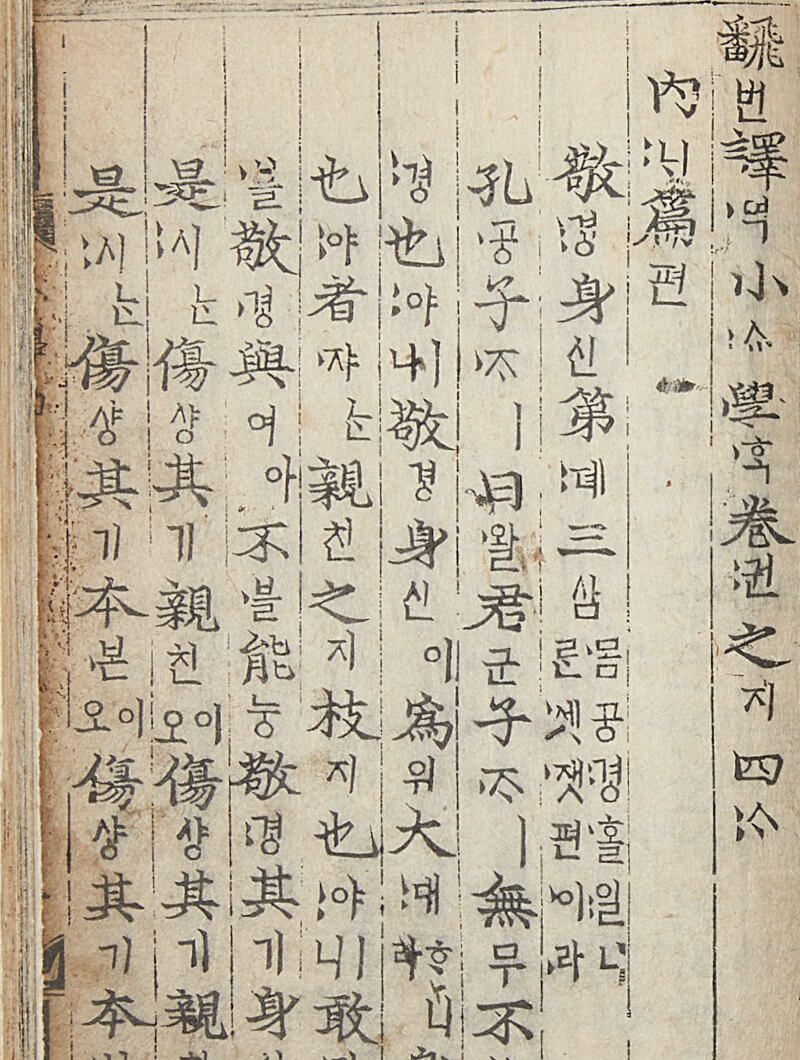 飜번譯·역小:쇼學·ᄒᆞᆨ卷:권之지四:ᄉᆞ
內:ᄂᆡ篇편 一
敬:경身신第:뎨三삼몸공:경홀·일니론·셋·잿편·이·라
孔:공子:ᄌᆞㅣ曰·왈君군子:ᄌᆞㅣ無무不
:경也:야ㅣ나敬:경身신이爲위大:대ᄒᆞ니·라
也:야者:쟈ᄂᆞᆫ親친之지枝지也:야ㅣ니敢
·블敬:경與여아不·블能능敬:경其기身
是:시ᄂᆞᆫ傷샹其기親친이오傷샹其기親
是:시ᄂᆞᆫ傷샹其기本본이오傷샹其기本